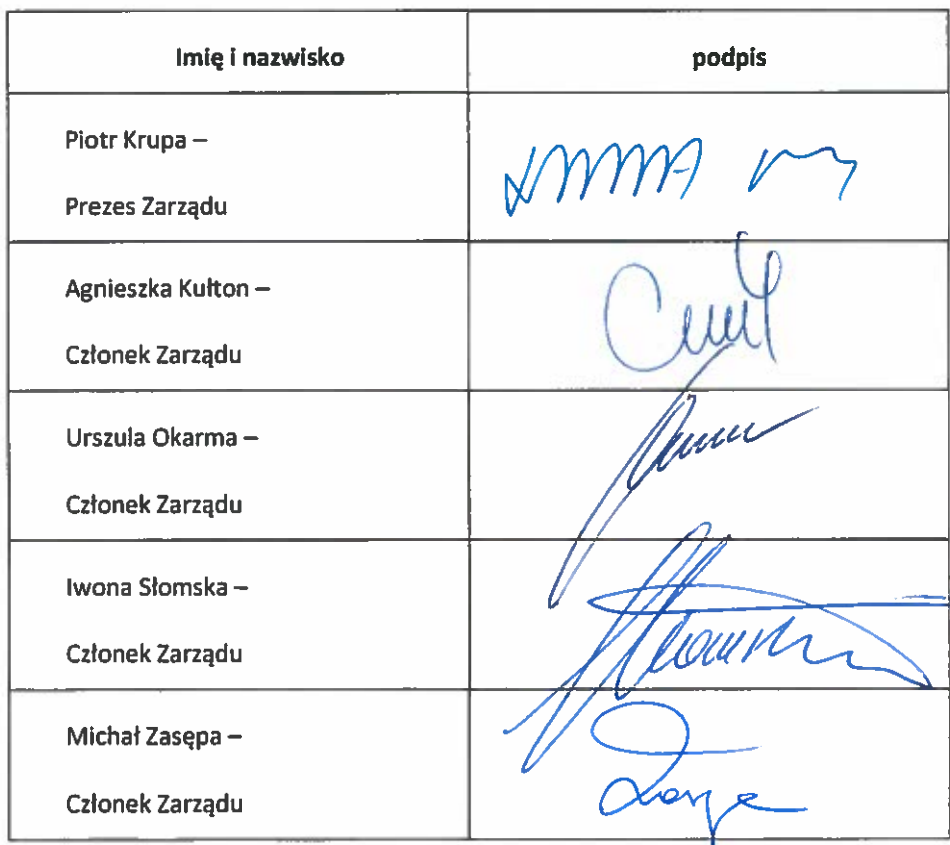 Imię i nazwisko podpis
Piotr Krupa –
Prezes Zarządu
Agnieszka Kułton –
Członek Zarządu
Urszula Okarma –
Członek Zarządu
Iwona Słomska –
Członek Zarządu
Michał Zasępa –
Członek Zarządu